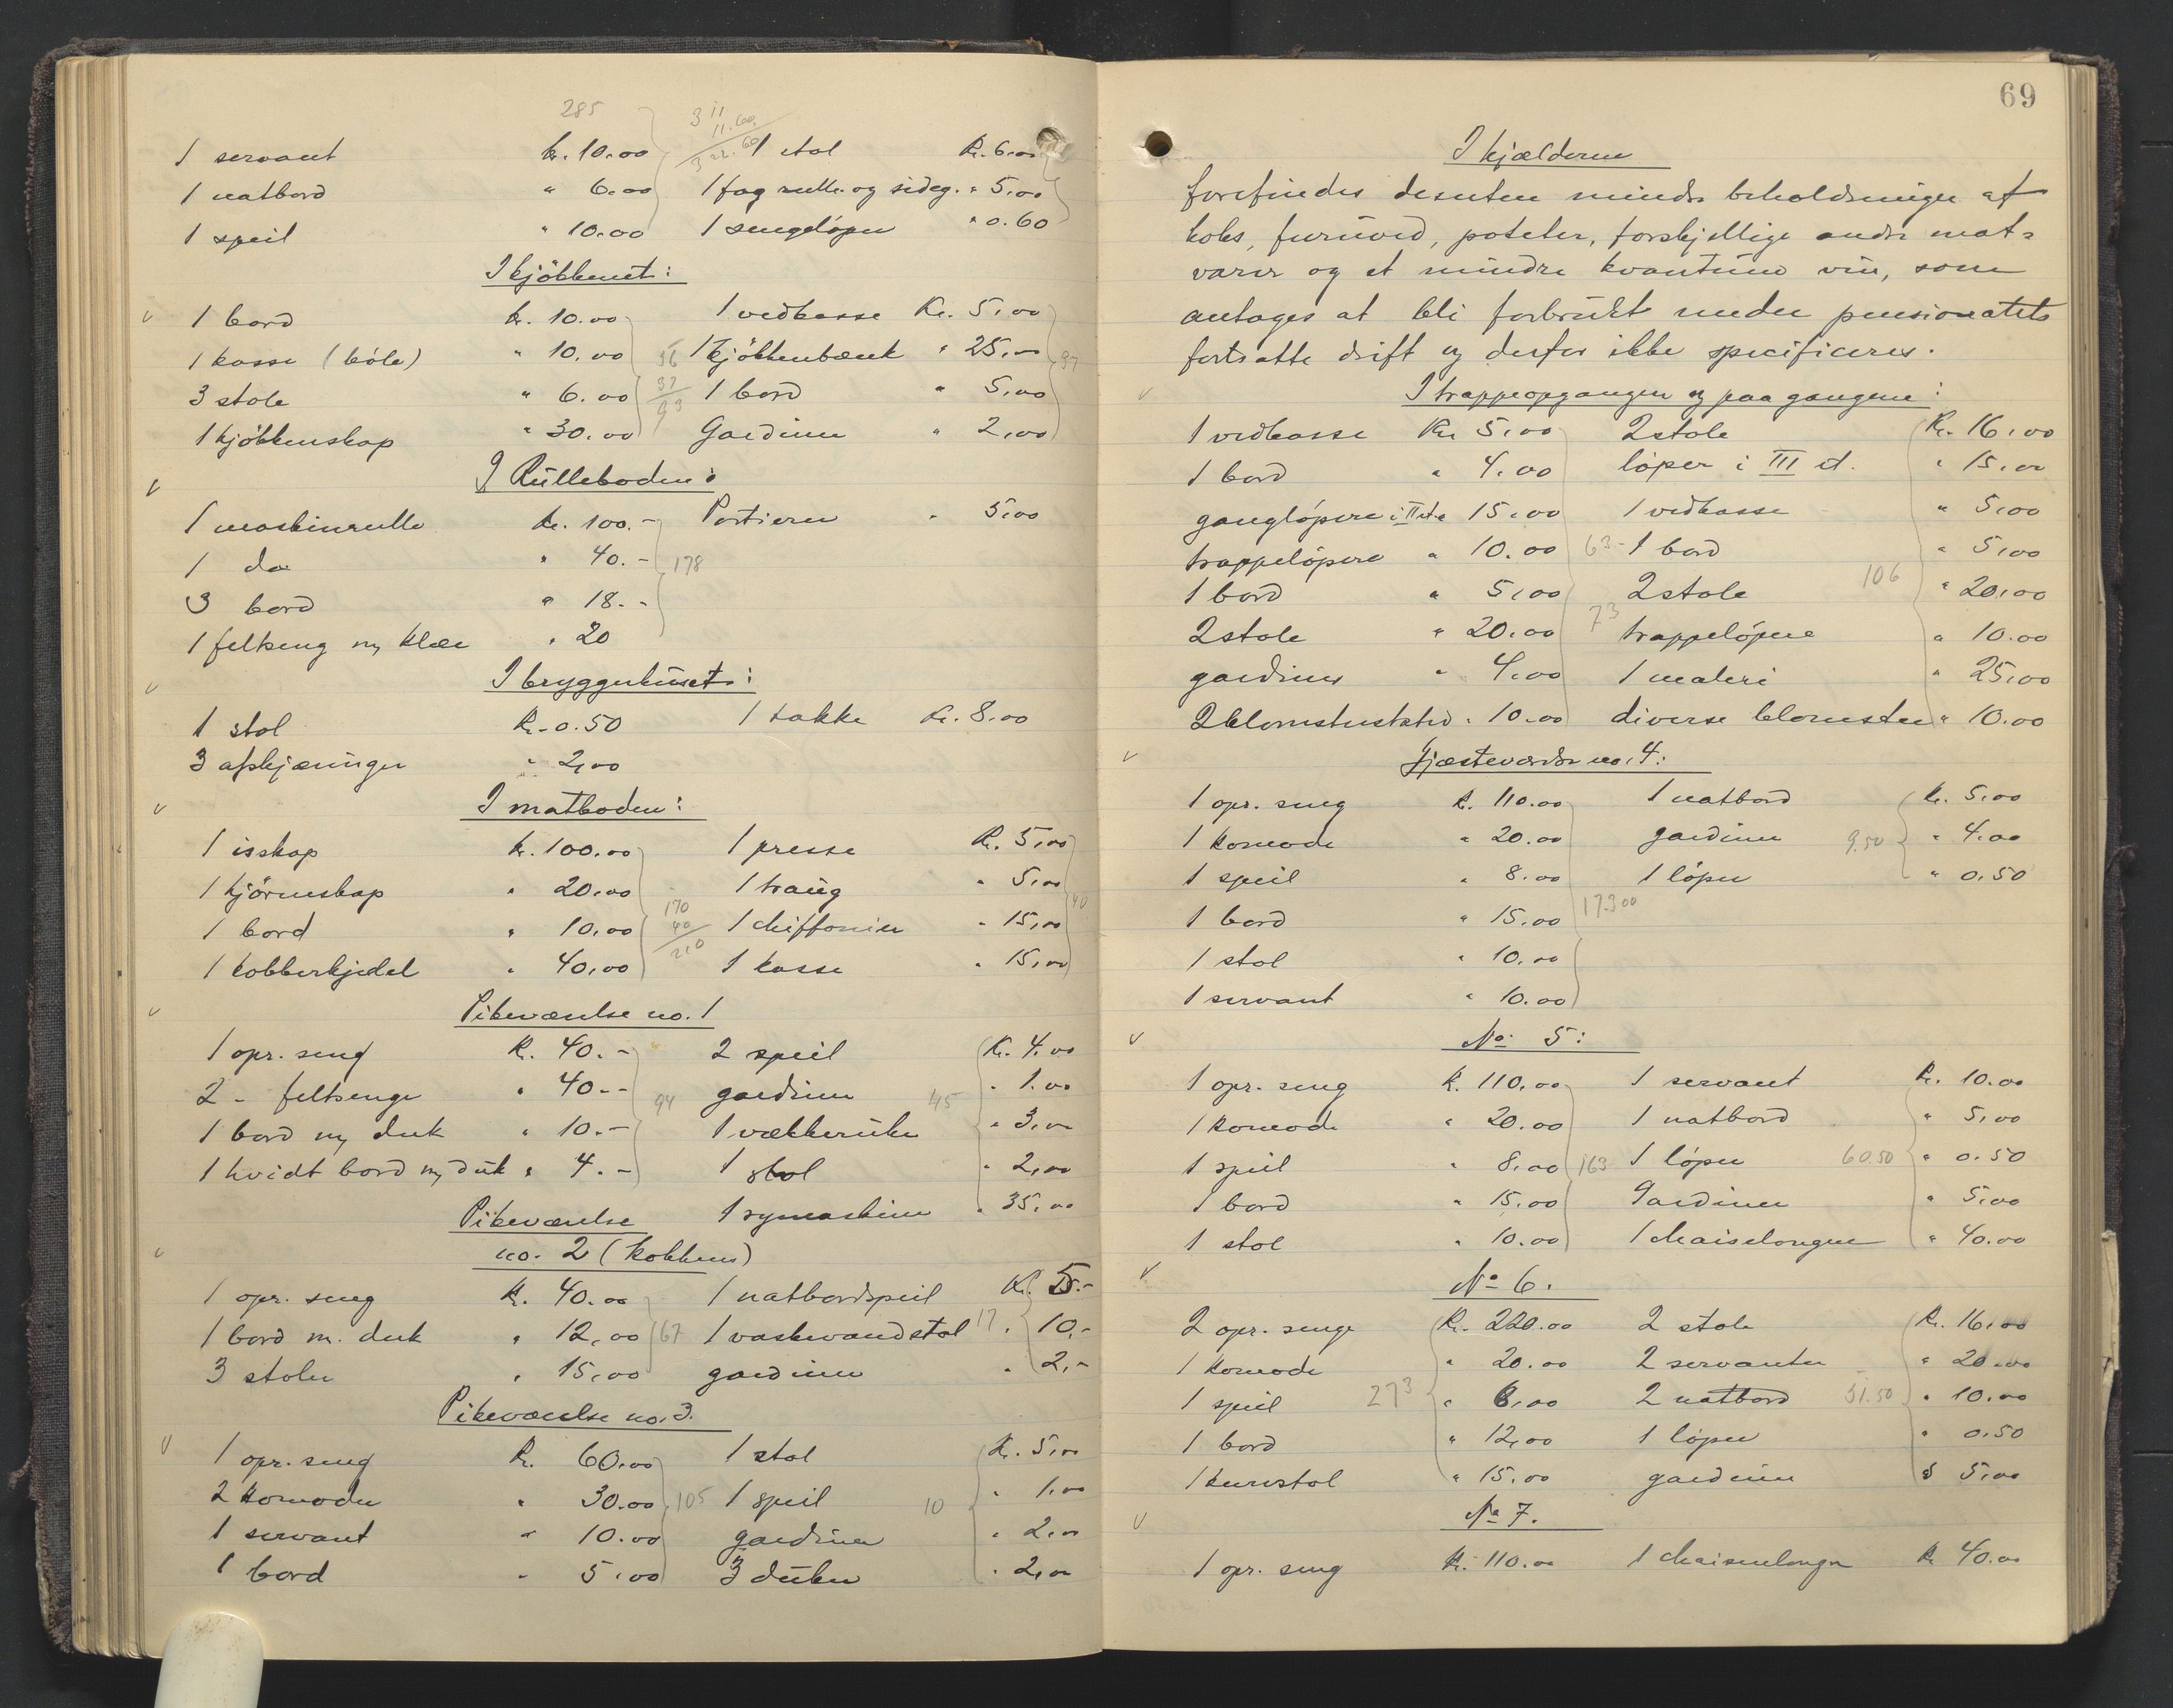 285
3 11
11.60
3 22.60
1 servant kr. 10.00 1 stol kr. 6.00
1 natbord " 6.00 1 fag rulle- og sideg. " 5.00
1 speil " 10.00 1 sengeløper " 0.60
I kjøkkenet:
1 bord kr. 10.00 1 vedkasse kr. 5.00
1 kasse (bøle) " 10.00 56 1 kjøkkenbænk " 25.— 37
3 stole " 6.00 37 1 bord " 5.00
1 kjøkkenskap " 30.00 93 Gardiner " 2.00
I Rulleboden:
1 maskinrulle kr. 100.- Portierer " 5.00
1 do " 40.- 178
3 bord " 18.-
1 feltseng m/ klær " 20
I bryggerhuset:
1 stol kr. 0.50 1 takke kr. 8.00
3 afskjæringer " 2.00
I matboden:
1 isskap kr. 100.00 1 presse kr. 5.00
1 hjørneskap " 20.00 1 traug " 5.00
1 bord " 10.00 170 40 1 chiffonier " 15.00 40
1 kobberkjedel " 40.00 210 1 kasse " 15.00
Pikeværelse no. 1
1 opr. seng kr. 40.- 2 speil kr. 4.00
2 - feltsenge " 40.- 94 gardiner 45 " 1.00
1 bord m/ duk " 10.- 1 vækkerur " 3.00
1 hvidt bord m/ duk " 4.- 1 stol " 2.00
Pikeværelse 1 symaskine " 35.00
no. 2 (kokkens)
1 opr. seng kr. 40.00 1 natbordspeil kr. 5.-
1 bord m. duk " 12.00 67 1 vaskevandstol 17 " 10.-
3 stoler " 15.00 gardiner " 2.-
Pikeværelse no. 3.
1 opr. seng kr. 60.00 1 stol kr. 5.00
2 komoder " 30.00 105 1 speil 10 " 1.00
1 servant " 10.00 gardiner " 2.00
1 bord " 5.00 3 duker " 2.00
69
I kjælderne
forefindes desuten mindre beholdninger af
koks, furuved, poteter, forskjellige andre mat=
varer og et mindre kvantum vin, som
antages at bli forbrukt under pensionatets
fortsatte drift og derfor ikke specificeres.
I trappeopgangen og paa gangene:
1 vedkasse Kr 5.00 2 stole kr. 16.00
1 bord " 4.00 løper i III et. " 15.00
gangløpere i II et. " 15.00 1 vedkasse " 5.00
trappeløpere " 10.00 63- 1 bord " 5.00
1 bord " 5.00 2 stole 106 " 20.00
2 stole " 20.00 73 trappeløpere " 10.00
gardiner " 4.00 1 maleri " 25.00
2 blomsterstativ " 10.00 diverse blomster " 10.00
Gjæsteværelse no. 4:
1 opr. seng kr. 110.00 1 natbord kr. 5.00
1 komode " 20.00 gardiner 9.50 " 4.00
1 speil " 8.00 1 løper " 0.50
1 bord " 15.00 173.00
1 stol " 10.00
1 servant " 10.00
No 5:
1 opr. seng kr. 110.00 1 servant kr. 10.00
1 komode " 20.00 1 natbord " 5.00
1 speil " 8.00 163 1 løper 60.50 " 0.50
1 bord " 15.00 Gardiner " 5.00
1 stol " 10.00 1 chaiselongue " 40.00
No 6.
2 opr. senge kr. 220.00 2 stole kr. 16.00
1 komode " 20.00 2 servanter " 20.00
1 speil 273 " 6.00 2 natbord 51.50 " 10.00
1 bord " 12.00 1 løper " 0.50
1 kurvstol " 15.00 gardiner " 5.00
No 7.
1 opr. seng kr. 110.00 1 chaiselongue kr 40.00